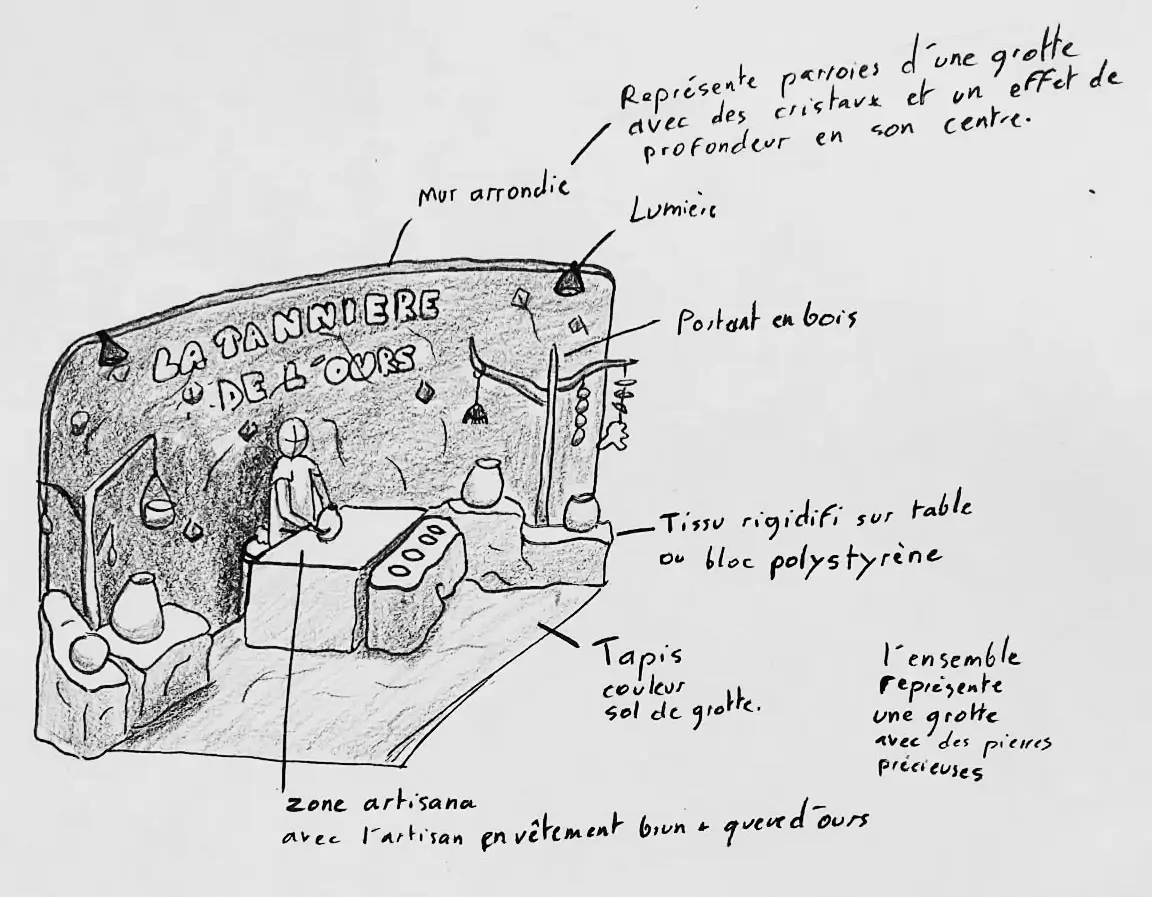 Représente parroies d'une grotte
avec des cristaux et un effet de
profondeur en son centre.
Mur arrondie
Lumière
LA TANNIERE
DE L'OURS
Portant en bois
Tissu rigidifi sur table
ou bloc polystyrène
Tapis
couleur
sol de grotte.
l'ensemble
représente
une grotte
avec des pierres
précieuses
zone artisana
avec l'artisan en vêtement brun + queue d'ours